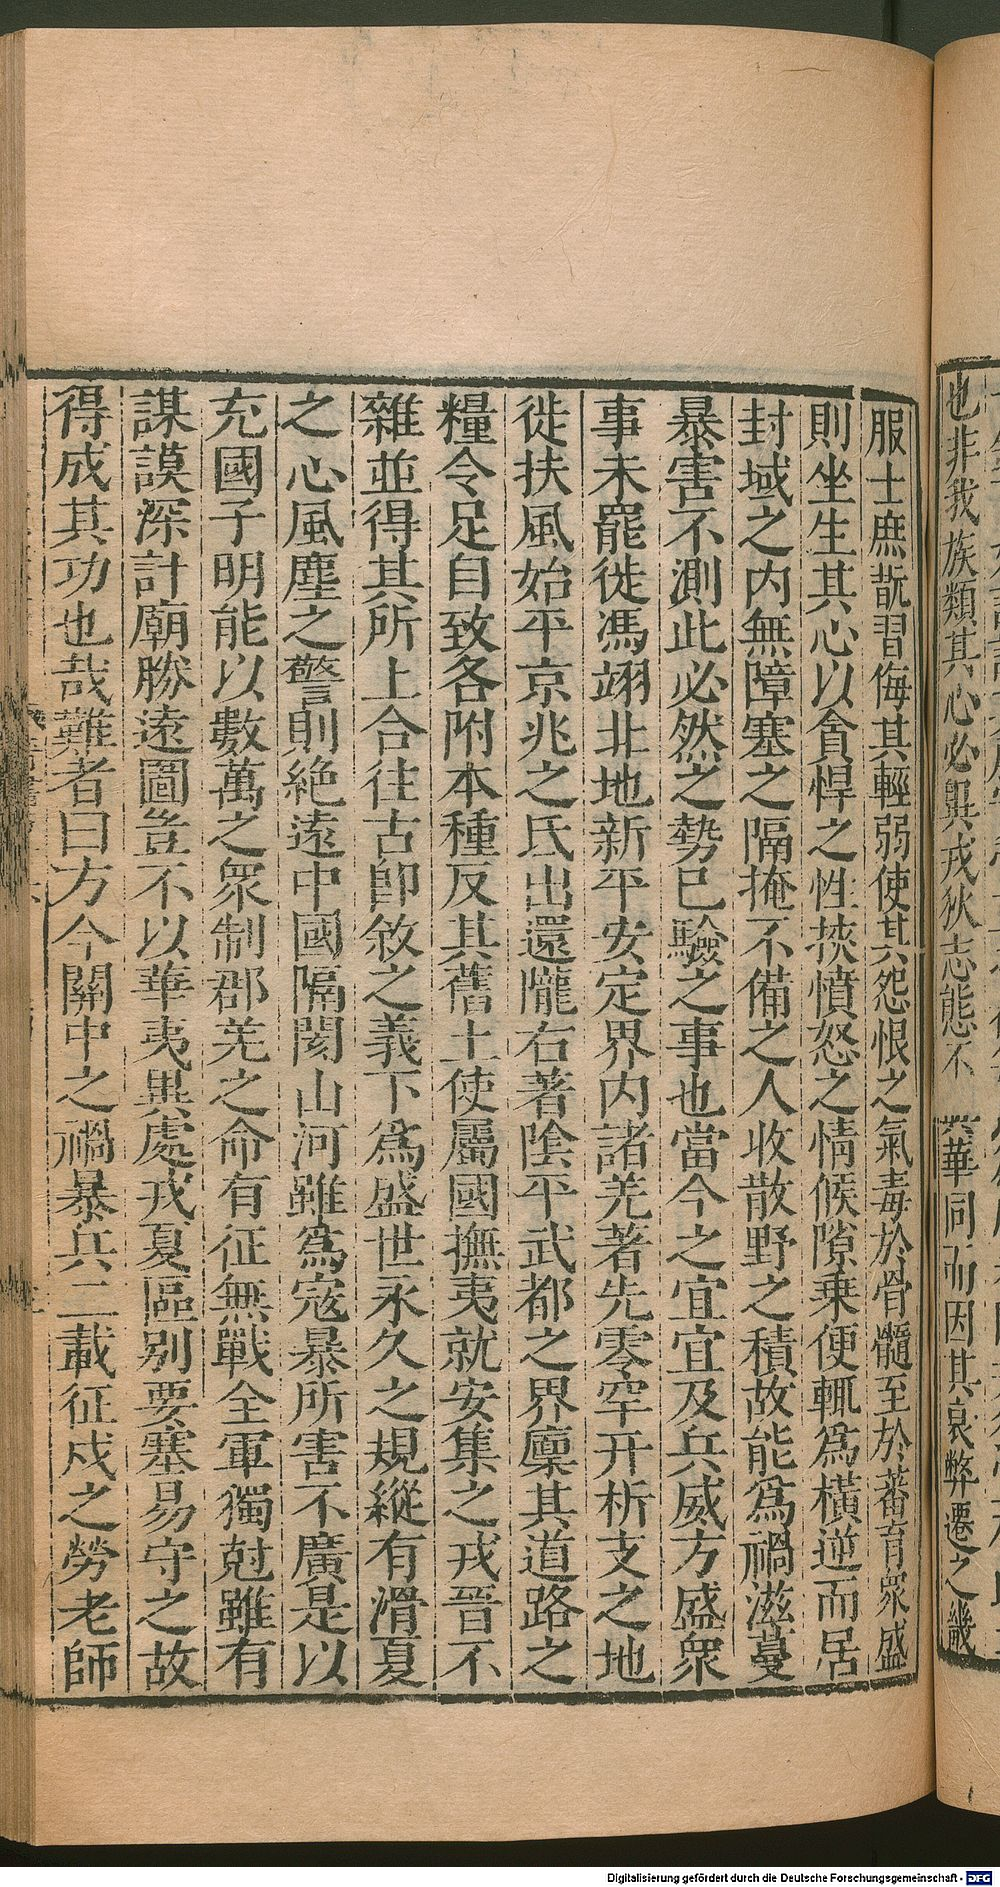 也非我族類其心必異戎狄志態不與華同而因其衰弊遷之畿
服士庶翫習侮其輕弱使其怨恨之氣毒於骨髓至於蕃育衆盛
則坐生其心以貪悍之性挾憤怒之情候隙乗便輒爲橫逆而居
封域之内無障塞之隔掩不備之人收散野之積故能爲禍滋蔓
暴害不測此必然之勢已驗之事也當今之宜宜及兵威方盛衆
事未罷徙馮翊北地新平安定界内諸羌著先零罕幵析支之地
徙扶風始平京兆之氐出還隴右著陰平武都之界廩其道路之
糧令足自致各附本種反其舊土使屬國撫夷就安集之戎晉不
雜並得其所上合往古即敘之義下爲盛世永久之規縱有滑夏
之心風塵之警則絶遠中國隔閡山河雖爲寇暴所害不廣是以
充國子明能以數萬之衆制郡羌之命有征無戰全軍獨尅雖有
謀謨深計廟勝遠圖豈不以華夷異處戎夏區别要塞易守之故
得成其功也哉難者曰方今關中之禍暴兵二載征戍之勞老師
Digitalisierung gefördert durch die Deutsche Forschungsgemeinschaft - DFG